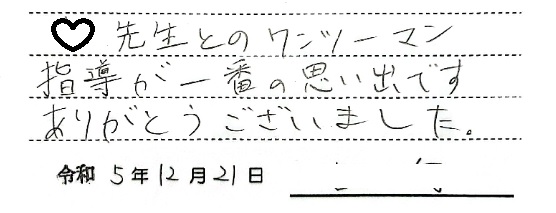 ♡先生とのワンツーマン
指導が一番の思い出です
ありがとうございました。
令和 5年12月21日